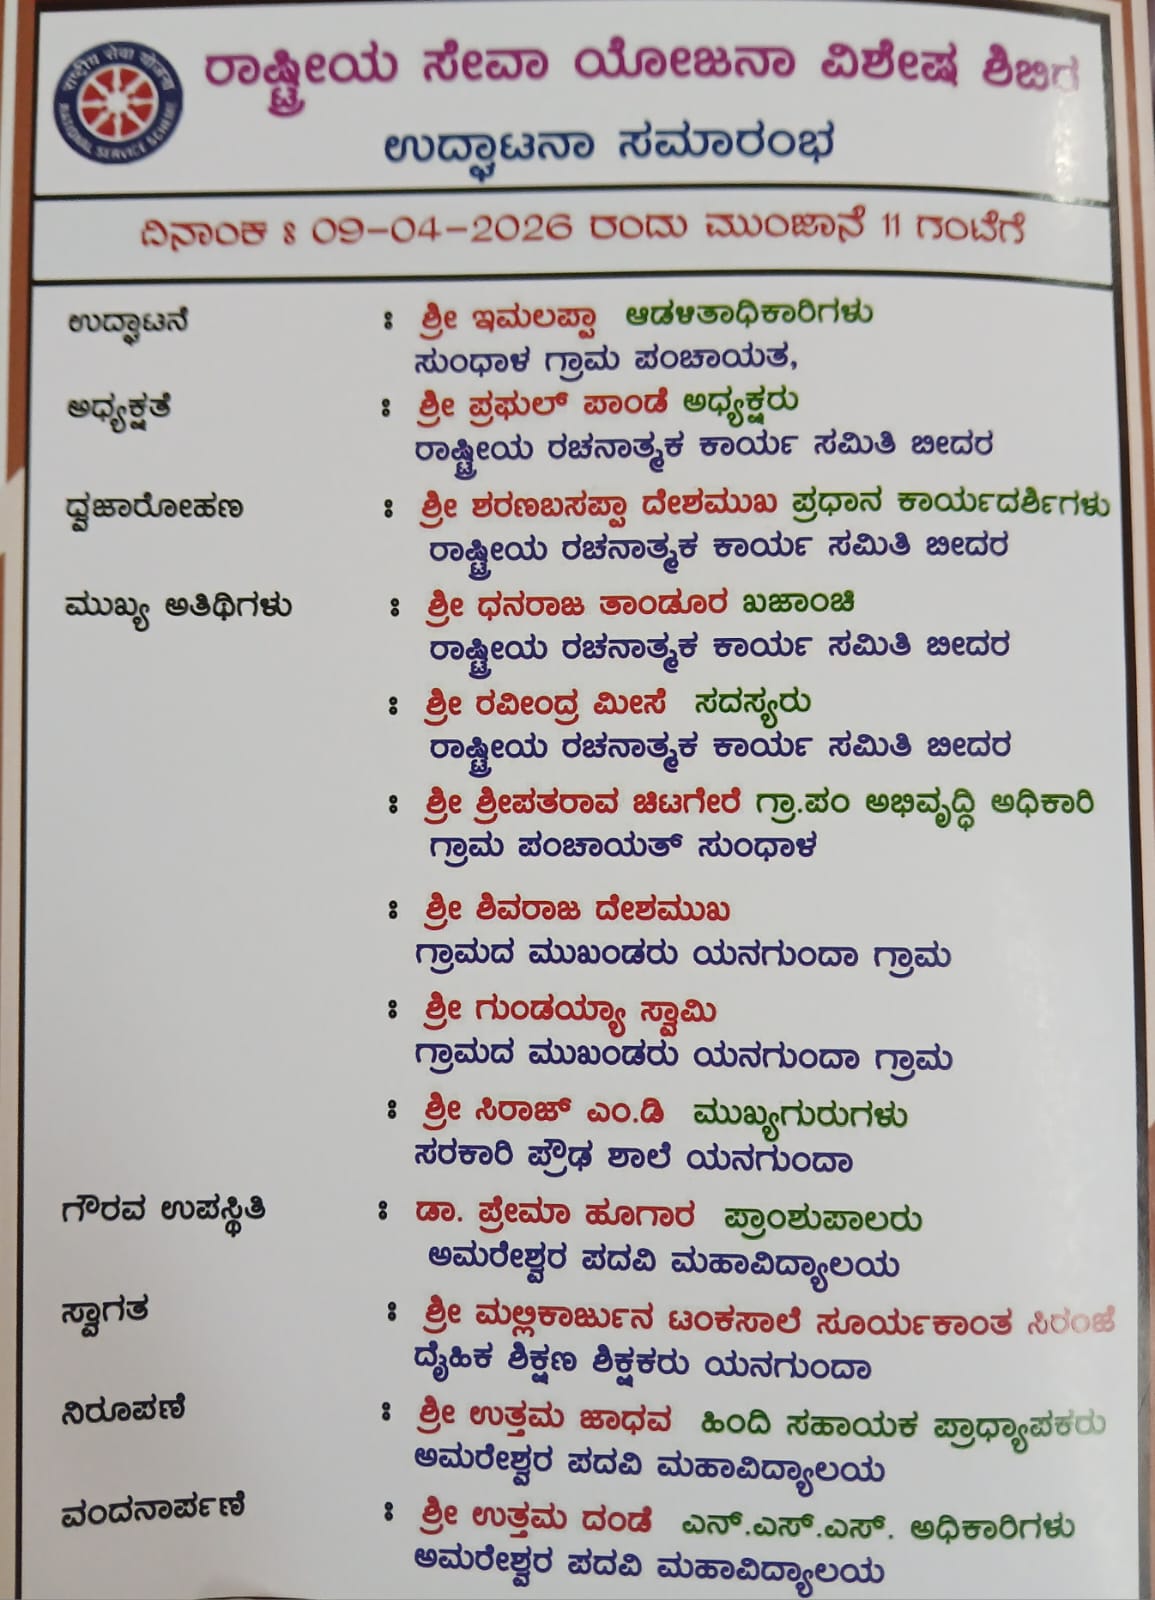 राष्ट्रीय सेवा योजना
NATIONAL SERVICE SCHEME
ರಾಷ್ಟ್ರೀಯ ಸೇವಾ ಯೋಜನಾ ವಿಶೇಷ ಶಿಬಿರ
ಉದ್ಘಾಟನಾ ಸಮಾರಂಭ
ದಿನಾಂಕ : 09-04-2026 ರಂದು ಮುಂಜಾನೆ 11 ಗಂಟೆಗೆ
ಉದ್ಘಾಟನೆ : ಶ್ರೀ ಇಮಲಪ್ಪಾ ಆಡಳಿತಾಧಿಕಾರಿಗಳು
ಸುಂಧಾಳ ಗ್ರಾಮ ಪಂಚಾಯತ,
ಅಧ್ಯಕ್ಷತೆ : ಶ್ರೀ ಪ್ರಘುಲ್ ಪಾಂಡೆ ಅಧ್ಯಕ್ಷರು
ರಾಷ್ಟ್ರೀಯ ರಚನಾತ್ಮಕ ಕಾರ್ಯ ಸಮಿತಿ ಬೀದರ
ಧ್ವಜಾರೋಹಣ : ಶ್ರೀ ಶರಣಬಸಪ್ಪಾ ದೇಶಮುಖ ಪ್ರಧಾನ ಕಾರ್ಯದರ್ಶಿಗಳು
ರಾಷ್ಟ್ರೀಯ ರಚನಾತ್ಮಕ ಕಾರ್ಯ ಸಮಿತಿ ಬೀದರ
ಮುಖ್ಯ ಅತಿಥಿಗಳು : ಶ್ರೀ ಧನರಾಜ ತಾಂಡೂರ ಖಜಾಂಚಿ
ರಾಷ್ಟ್ರೀಯ ರಚನಾತ್ಮಕ ಕಾರ್ಯ ಸಮಿತಿ ಬೀದರ
: ಶ್ರೀ ರವೀಂದ್ರ ಮೀಸೆ ಸದಸ್ಯರು
ರಾಷ್ಟ್ರೀಯ ರಚನಾತ್ಮಕ ಕಾರ್ಯ ಸಮಿತಿ ಬೀದರ
: ಶ್ರೀ ಶ್ರೀಪತರಾವ ಚಿಟಗೇರೆ ಗ್ರಾ.ಪಂ ಅಭಿವೃದ್ಧಿ ಅಧಿಕಾರಿ
ಗ್ರಾಮ ಪಂಚಾಯತ್ ಸುಂಧಾಳ
: ಶ್ರೀ ಶಿವರಾಜ ದೇಶಮುಖ
ಗ್ರಾಮದ ಮುಖಂಡರು ಯನಗುಂದಾ ಗ್ರಾಮ
: ಶ್ರೀ ಗುಂಡಯ್ಯಾ ಸ್ವಾಮಿ
ಗ್ರಾಮದ ಮುಖಂಡರು ಯನಗುಂದಾ ಗ್ರಾಮ
: ಶ್ರೀ ಸಿರಾಜ್ ಎಂ.ಡಿ ಮುಖ್ಯಗುರುಗಳು
ಸರಕಾರಿ ಪ್ರೌಢ ಶಾಲೆ ಯನಗುಂದಾ
ಗೌರವ ಉಪಸ್ಥಿತಿ : ಡಾ. ಪ್ರೇಮಾ ಹೂಗಾರ ಪ್ರಾಂಶುಪಾಲರು
ಅಮರೇಶ್ವರ ಪದವಿ ಮಹಾವಿದ್ಯಾಲಯ
ಸ್ವಾಗತ : ಶ್ರೀ ಮಲ್ಲಿಕಾರ್ಜುನ ಟಂಕಸಾಲೆ ಸೂರ್ಯಕಾಂತ ಸಿರಂಜೆ
ದೈಹಿಕ ಶಿಕ್ಷಣ ಶಿಕ್ಷಕರು ಯನಗುಂದಾ
ನಿರೂಪಣೆ : ಶ್ರೀ ಉತ್ತಮ ಜಾಧವ ಹಿಂದಿ ಸಹಾಯಕ ಪ್ರಾಧ್ಯಾಪಕರು
ಅಮರೇಶ್ವರ ಪದವಿ ಮಹಾವಿದ್ಯಾಲಯ
ವಂದನಾರ್ಪಣೆ : ಶ್ರೀ ಉತ್ತಮ ದಂಡೆ ಎನ್.ಎಸ್.ಎಸ್. ಅಧಿಕಾರಿಗಳು
ಅಮರೇಶ್ವರ ಪದವಿ ಮಹಾವಿದ್ಯಾಲಯ